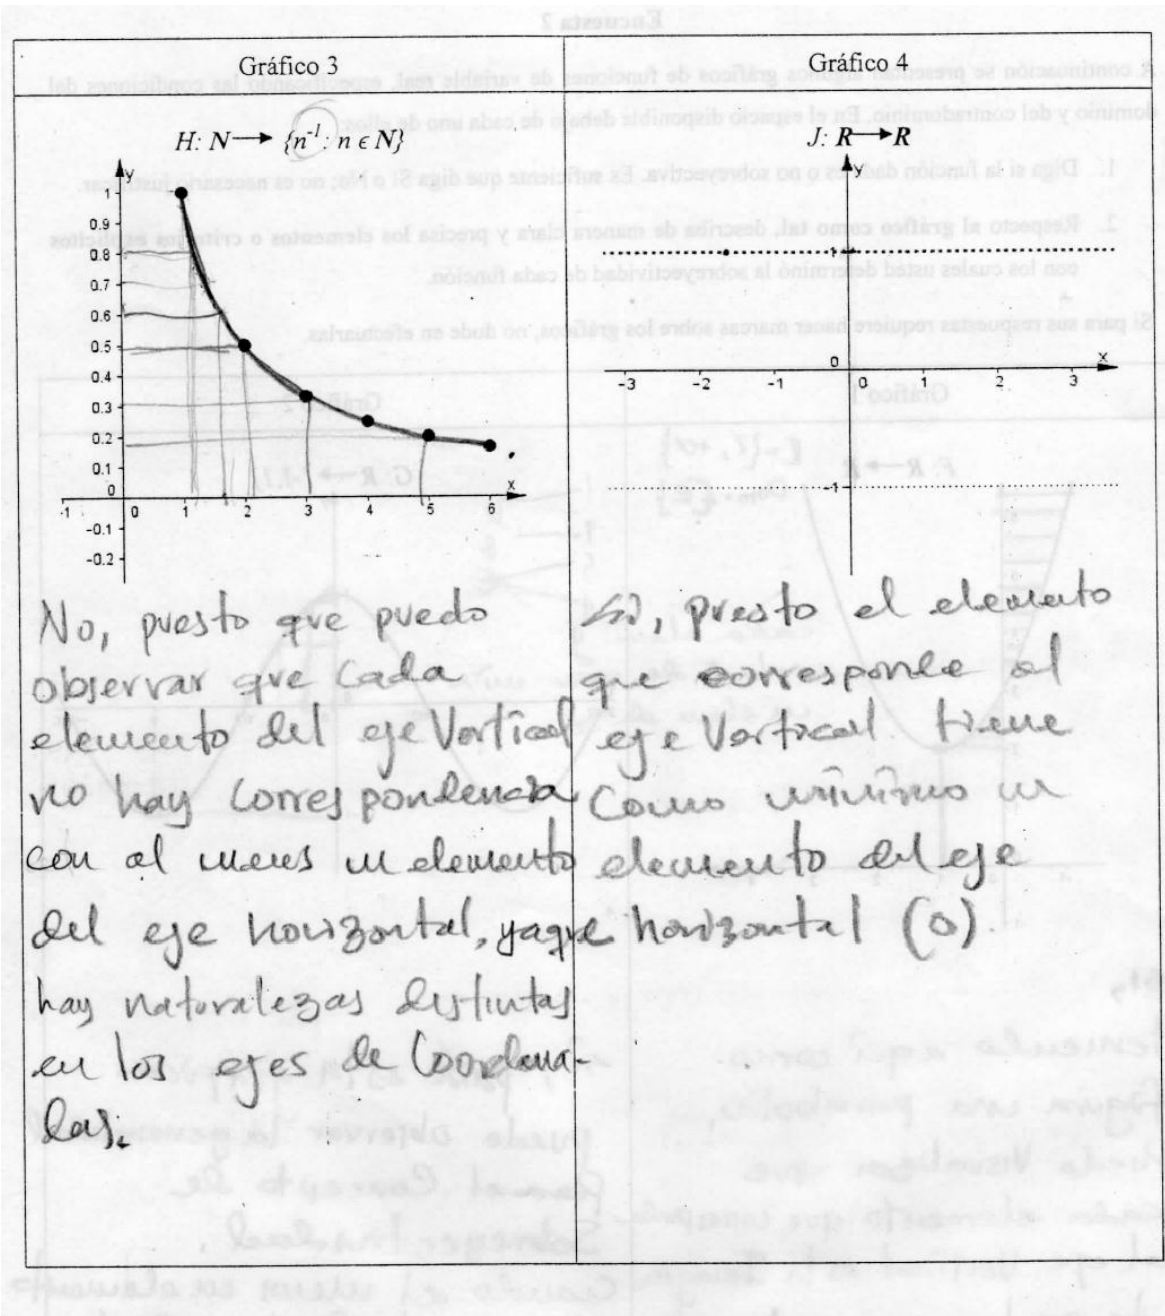 Gráfico 3
H: N → {n⁻¹: n ϵ N}
Y
1
0.9
0.8
0.7
0.6
0.5
0.4
0.3
0.2
0.1
0
-0.1
-0.2
-1 0 1 2 3 4 5 6
X
No, puesto que puedo
observar que cada
elemento del eje Vertical
no hay correspondencia
con al menos un elemento
del eje horizontal, yaque
hay naturalezas distintas
en los ejes de Coordena-
das.
Gráfico 4
J: R → R
Y
1
0
-1
-3 -2 -1 0 1 2 3
X
Sí, puesto el elemento
que corresponde al
eje Vertical tiene
como mínimo un
elemento del eje
horizontal (o)